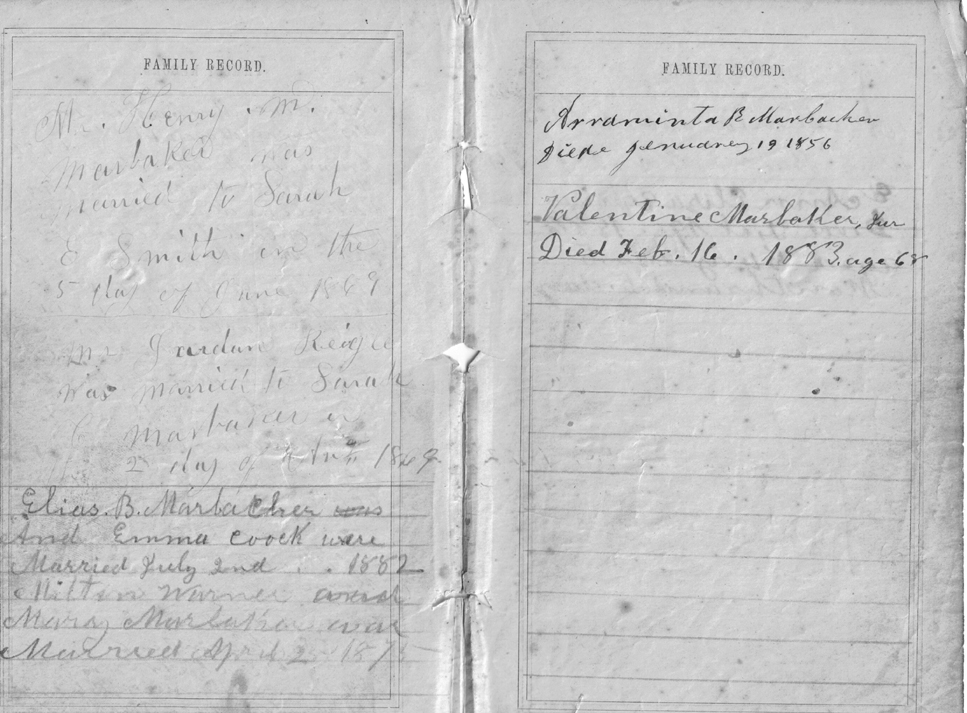 FAMILY RECORD.
Mr. Henry M.
Marbaker was
married to Sarah
E Smith in the
5 day of June 1869
Mr Jordan
was married to Sarah
C Marbaker
2 day of
Elias. B. Marbacher was
And Emma Coock were
Married July 2nd . . 1882
Milton Warner
Mary Marbaker
Married April 2
FAMILY RECORD.
Arraminta B Marbacker
Diede Jenudrey 19 1856
Valentine Marbaker, Jur
Died Feb. 16. 1883. age